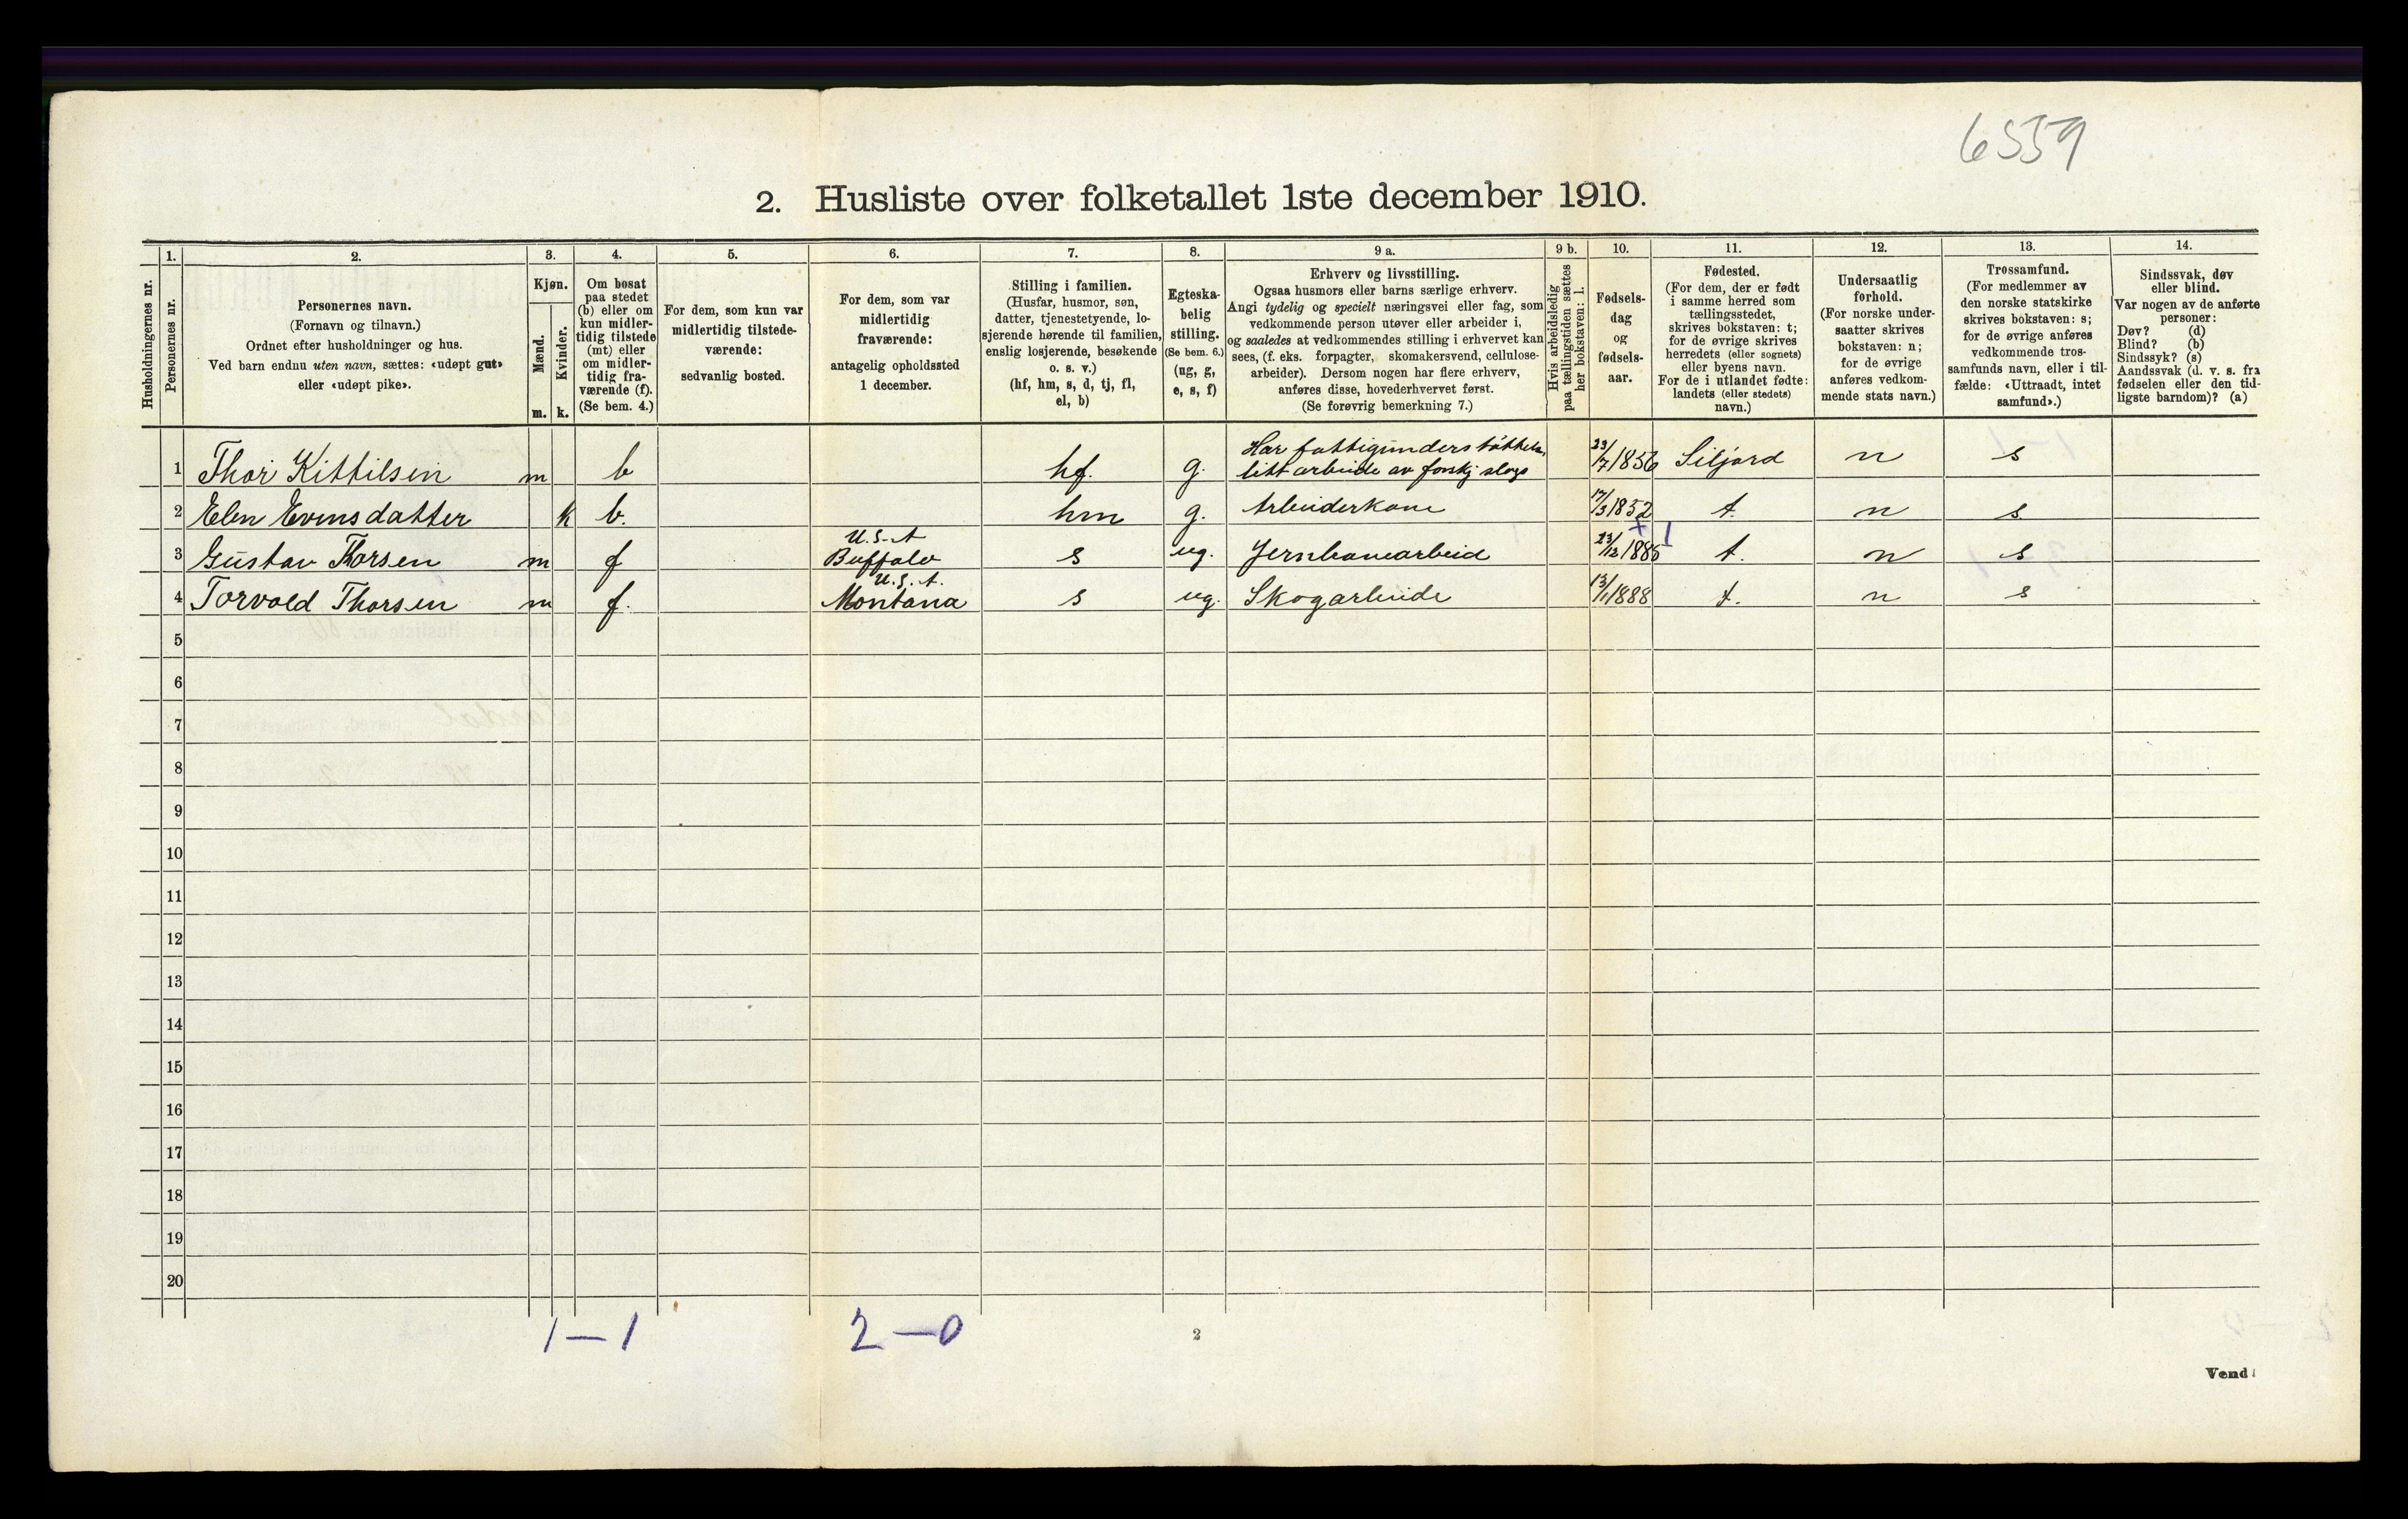 6559
2. Husliste over folketallet 1ste december 1910.
Husholdningernes nr.
1.
Personernes nr.
2.
Personernes navn.
(Fornavn og tilnavn.)
Ordnet efter husholdninger og hus.
Ved barn endnu uten navn, sættes: «udøpt gut»
eller «udøpt pike».
3.
Kjøn.
Mænd.
m.
Kvinder.
k.
4.
Om bosat
paa stedet
(b) eller om
kun midler-
tidig tilstede
(mt) eller
om midler-
tidig fra-
værende (f).
(Se bem. 4.)
5.
For dem, som kun var
midlertidig tilstede-
værende:
sedvanlig bosted.
6.
For dem, som var
midlertidig
fraværende:
antagelig opholdssted
1 december.
7.
Stilling i familien.
(Husfar, husmor, søn,
datter, tjenestetyende, lo-
sjerende hørende til familien,
enslig losjerende, besøkende
o. s. v.)
(hf, hm, s, d, tj, fl,
el, b)
8.
Egteska-
belig
stilling.
(Se bem. 6.)
(ug, g,
e, s, f)
9 a.
Erhverv og livsstilling.
Ogsaa husmors eller barns særlige erhverv.
Angi tydelig og specielt næringsvei eller fag, som
vedkommende person utøver eller arbeider i,
og saaledes at vedkommendes stilling i erhvervet kan
sees, (f. eks. forpagter, skomakersvend, cellulose-
arbeider). Dersom nogen har flere erhverv,
anføres disse, hovederhvervet først.
(Se forøvrig bemerkning 7.)
9 b.
Hvis arbeidsledig
paa tællingstiden sættes
her bokstaven: l.
10.
Fødsels-
dag
og
fødsels-
aar.
11.
Fødested.
(For dem, der er født
i samme herred som
tællingsstedet,
skrives bokstaven: t;
for de øvrige skrives
herredets (eller sognets)
eller byens navn.
For de i utlandet fødte:
landets (eller stedets)
navn.)
12.
Undersaatlig
forhold.
(For norske under-
saatter skrives
bokstaven: n;
for de øvrige
anføres vedkom-
mende stats navn.)
13.
Trossamfund.
(For medlemmer av
den norske statskirke
skrives bokstaven: s;
for de øvrige anføres
vedkommende tros-
samfunds navn, eller i til-
fælde: «Uttraadt, intet
samfund».)
14.
Sindssvak, døv
eller blind.
Var nogen av de anførte
personer:
Døv? (d)
Blind? (b)
Sindssyk? (s)
Aandssvak (d. v. s. fra
fødselen eller den tid-
ligste barndom)? (a)
Har fattigunderstøttelse,
1 Thor Kittilsen m b hf. g. litt arbeide av forskj slags 23/7 1856 Siljord n s
2 Elen Evensdatter k b. hm g. Arbeiderkone 17/3 1852 t. n s
U.S.A
3 Gustav Thorsen m f Buffalo s ug. Jernbanearbeid 23/12 1885 t. n s
U.S.A.
4 Torvald Thorsen m f. Montana s ug. Skogarbeide 13/1 1888 t. n s
5
6
7
8
9
10
11
12
13
14
15
16
17
18
19
20
1—1 2—0
2
Vend!